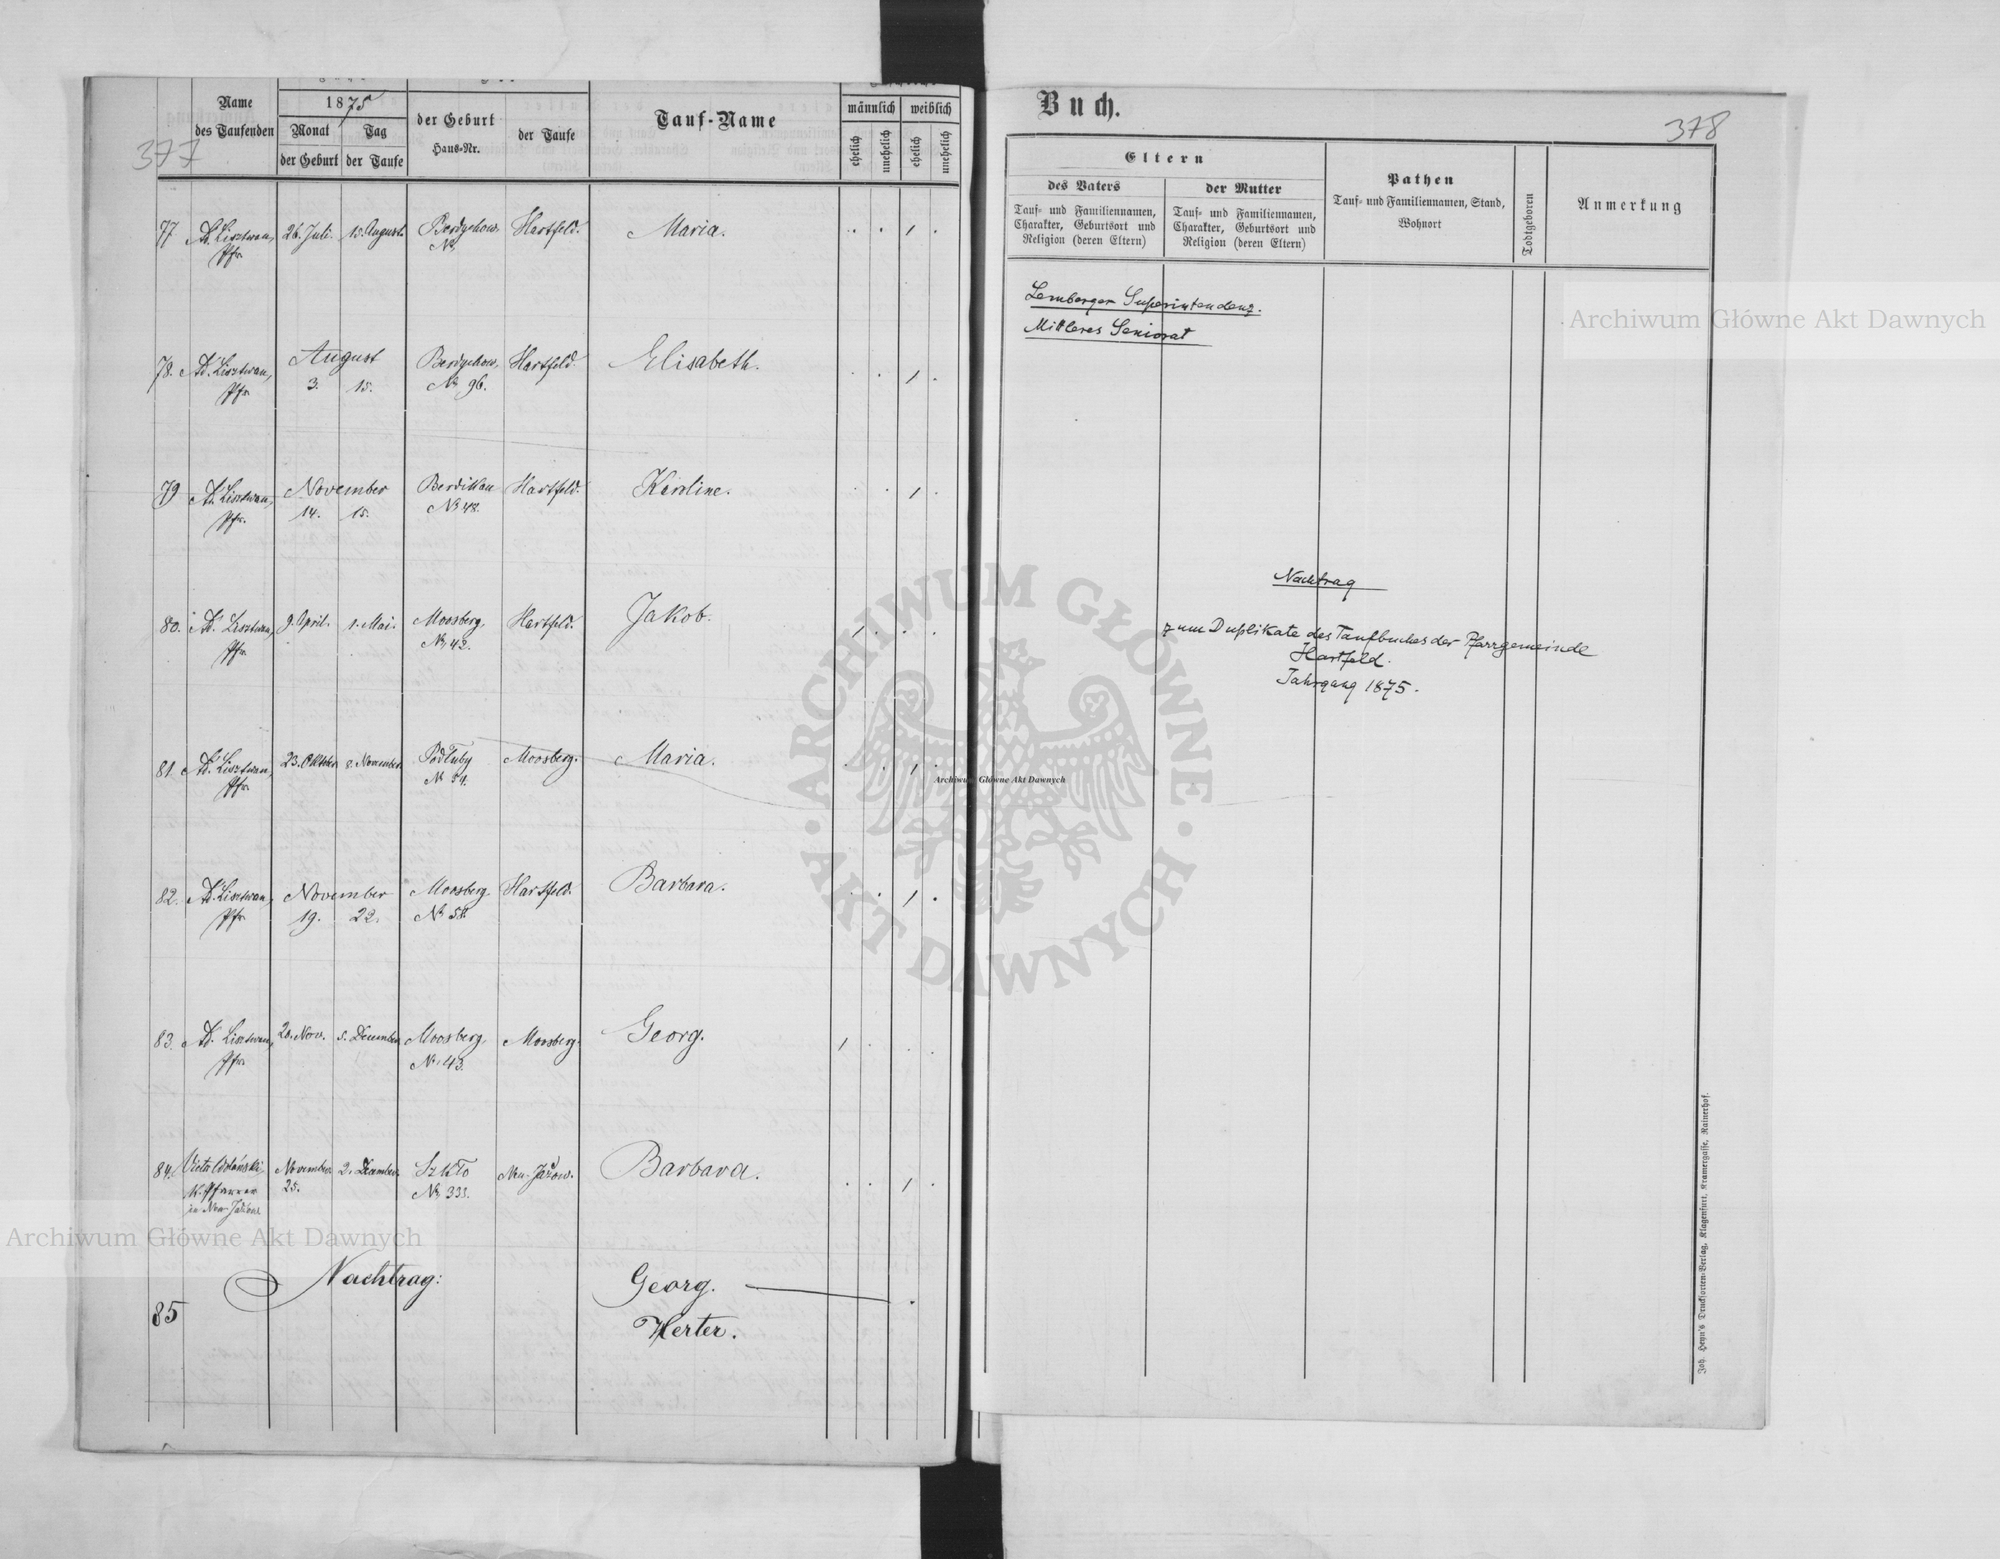 377
Name
des Taufenden
1875
Monat
Tag
der Geburt
der Taufe
der Geburt
Haus-Nr.
der Taufe
Tauf-Name
männlich
weiblich
ehelich
unehelich
ehelich
unehelich
77 Ad. Lisztwan, 26. Juli. 15. August Berdychow Hartfeld. Maria. . . 1 .
Pfr. №
August
78. Ad. Lisztwan, Berdychow, Hartfeld. Elisabeth. . . 1 .
Pfr. 3. 15. № 96.
79 Ad. Lisztwan, November Berdikau Hartfeld. Karoline. . . 1 .
Pfr. 14. 15. № 48.
80. Ad. Lisztwan, 9. April. 1. Mai. Moosberg. Hartfeld. Jakob. 1 . . .
Pfr. № 42.
81. Ad. Lisztwan, 23. Oktober 8. November Podłuby Moosberg. Maria. . . 1 .
Pfr. № 59.
82. Ad. Lisztwan, November Moosberg. Hartfeld. Barbara. . . 1 .
Pfr. 19. 22. № 58.
83. Ad. Lisztwan, 20. Nov. 5. December Moosberg, Moosberg. Georg. 1 . . .
Pfr. № 43.
84. November 2. Dezember. Szkło Neu-Jażow. Barbara. . . 1 .
K. Pfarrer 25. № 333.
in Neu-Jażow
Nachtrag: Georg.
85 Herter.
Buch.
378
Eltern
des Vaters
Tauf- und Familiennamen,
Charakter, Geburtsort und
Religion (deren Eltern)
der Mutter
Tauf- und Familiennamen,
Charakter, Geburtsort und
Religion (deren Eltern)
Pathen
Tauf- und Familiennamen, Stand,
Wohnort
Todtgeboren
Anmerkung
Lemberger Superintendenz.
Mittleres Seniorat
Nachtrag
zum Duplikate des Taufbuches der Pfarrgemeinde
Hartfeld.
Jahrgang 1875.
Joh. Heyn's Drucksorten-Verlag, Klagenfurt, Kramergasse, Rainerhof.
Archiwum Główne Akt Dawnych
ARCHIWUM GŁÓWNE · AKT DAWNYCH ·
Archiwum Główne Akt Dawnych
Archiwum Główne Akt Dawnych